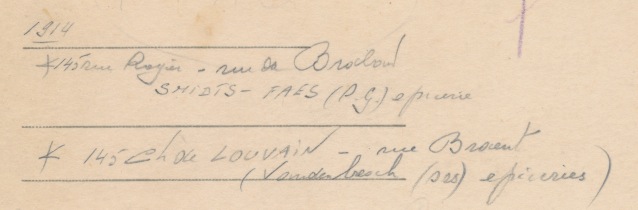 1914
* 145 rue Rogier - rue du Brabant
SMIDTS - FAES (P.G.) epicerie
* 145 Ch de LOUVAIN - rue Bravent
(Vandenbosch (srs) epiceries)